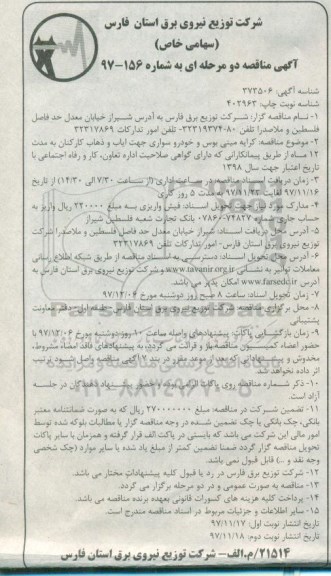 شرکت توزیع نیروی برق استان فارس
(سهامی خاص)
آگهی مناقصه دو مرحله ای به شماره ۱۵۶-۹۷
شناسه آگهی: ۳۷۳۵۰۶
شناسه نوبت چاپ: ۴۰۲۹۶۳
۱- نام مناقصه گزار: شرکت توزیع برق فارس به آدرس شیراز خیابان معدل حد فاصل
فلسطین و ملاصدرا تلفن ۳۲۳۱۹۳۷۴-۸۰ تلفن امور تدارکات ۳۲۳۱۷۸۶۹
۲- موضوع مناقصه: کرایه مینی بوس و خودرو سواری جهت ایاب و ذهاب کارکنان به مدت
۱۲ ماه از طریق پیمانکارانی که دارای گواهی صلاحیت اداره تعاون، کار و رفاه اجتماعی با
تاریخ اعتبار جهت سال ۱۳۹۸
۳- زمان دریافت اسناد مناقصه: در ساعات اداری (از ساعت ۷/۳۰ الی ۱۴/۳۰) از تاریخ
۹۷/۱۱/۱۶ لغایت ۹۷/۱۱/۲۳ به مدت ۵ روز کاری
۴- مدارک مورد نیاز جهت تحویل اسناد: فیش واریزی به مبلغ ۲۲۰۰۰۰ ریال واریز به
حساب جاری شماره ۰۷۸۶۰۰۷۴۸۲۷ بانک تجارت شعبه فلسطین شیراز
۵- آدرس محل دریافت اسناد: شیراز خیابان معدل حد فاصل فلسطین و ملاصدرا شرکت
توزیع نیروی برق استان فارس- امور تدارکات تلفن ۳۲۳۱۷۸۶۹
۶- آدرس محل تحویل اسناد: دسترسی به اسناد مناقصه از طریق شبکه اطلاع رسانی
معاملات توانیر به نشانی www.tavanir.org.ir و شرکت توزیع نیروی برق استان فارس به
آدرس www.farsedc.ir امکان پذیر می باشد.
۷- زمان تحویل اسناد: ساعت ۸ صبح روز دوشنبه مورخ ۹۷/۱۲/۰۶
۸- محل برگزاری مناقصه: شرکت توزیع نیروی برق استان فارس- طبقه اول- دفتر معاونت
پشتیبانی
۹- زمان بازگشایی پاکات: پیشنهادهای واصله ساعت ۱۰ روز دوشنبه مورخ ۹۷/۱۲/۰۶ با
حضور اعضاء کمیسیون مناقصه باز و قرائت می گردد، به پیشنهادهای فاقد امضاء، مشروط،
مخدوش و پیشنهاداتی که بعد از موعد مقرر در بند ۷ آگهی مناقصه واصل شود ترتیب
اثر داده نخواهد شد.
۱۰- ذکر شماره مناقصه روی پاکات الزامی بوده و حضور پیشنهاد دهندگان در جلسه
آزاد است.
۱۱- تضمین شرکت در مناقصه: مبلغ ۲۷۰۰۰۰۰۰۰ ریال که به صورت ضمانتنامه معتبر
بانکی، چک بانکی یا چک تضمین شده در وجه مناقصه گزار یا مطالبات بلوکه شده توسط
امور مالی این شرکت می باشد که بایستی در پاکت الف قرار گرفته و همزمان با سایر پاکات
تحویل مناقصه گزار گردد ضمنا تضمین کمتر از مبلغ یاد شده یا سایر موارد (چک شخصی
وجه نقد و ...) قابل قبول نمی باشد.
۱۲- شرکت توزیع برق فارس در رد یا قبول کلیه پیشنهادات مختار می باشد.
۱۳- مناقصه به صورت عمومی و در دو مرحله برگزار می گردد.
۱۴- پرداخت کلیه هزینه های کسورات قانونی بعهده برنده مناقصه می باشد.
۱۵- سایر اطلاعات و جزئیات مربوط در اسناد مناقصه مندرج است.
تاریخ انتشار نوبت اول: ۹۷/۱۱/۱۷
تاریخ انتشار نوبت دوم: ۹۷/۱۱/۱۸
۲۱۵۱۴/م.الف- شرکت توزیع نیروی برق استان فارس